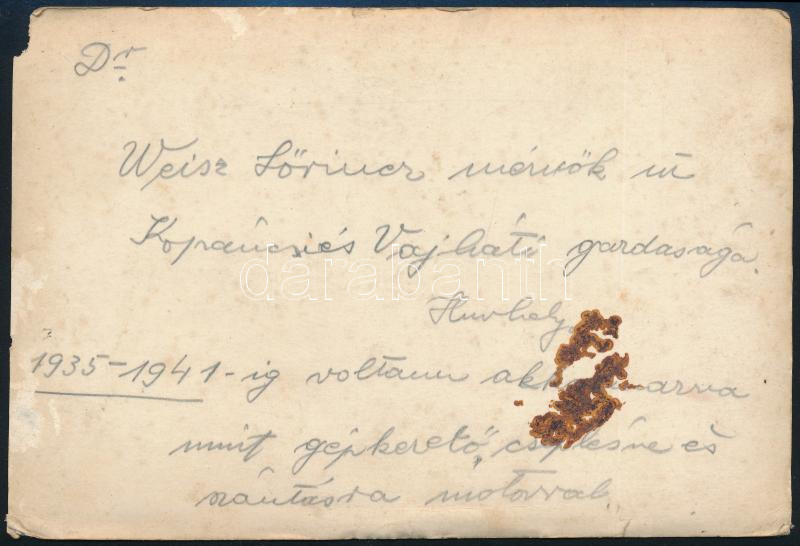 Dr.
Weisz Lőrincz mérnök úr
Kopáncsi és Vajháti gardasága.
Hmvhely.
1935-1941-ig voltam
mint gépkezelő, cséplésre és
szántásra motorral.
darabanth